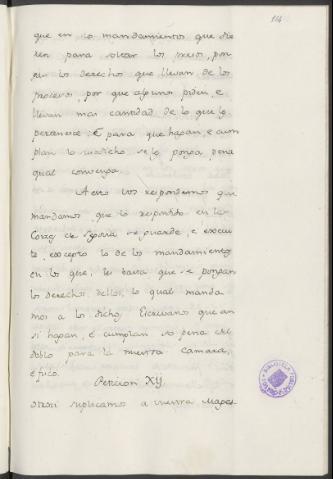 114
que en lo mandamientos que die
ren para soltar los presos, pon
gan los derechos que llevan de los
procesos, por que algunos piden, e
llevan mas cantidad de lo que le
pertenece: E para que hagan, e cum
plan lo susodicho se le ponga pena
qual convenga.
A esto vos respondemos que
mandamos que lo respondido en las
Cortes de Segovia se guarde, e execu
te, excepto lo de los mandamientos
en los que, se basta que se pongan
los derechos dellos, lo qual manda
mos a los dichos Escrivanos que an
si hagan, e cumplan so pena del
doblo para la nuestra Camara,
e fisco.
Peticion XV.
Otrosi suplicamos a vuestra Mages
BIBLIOTECA